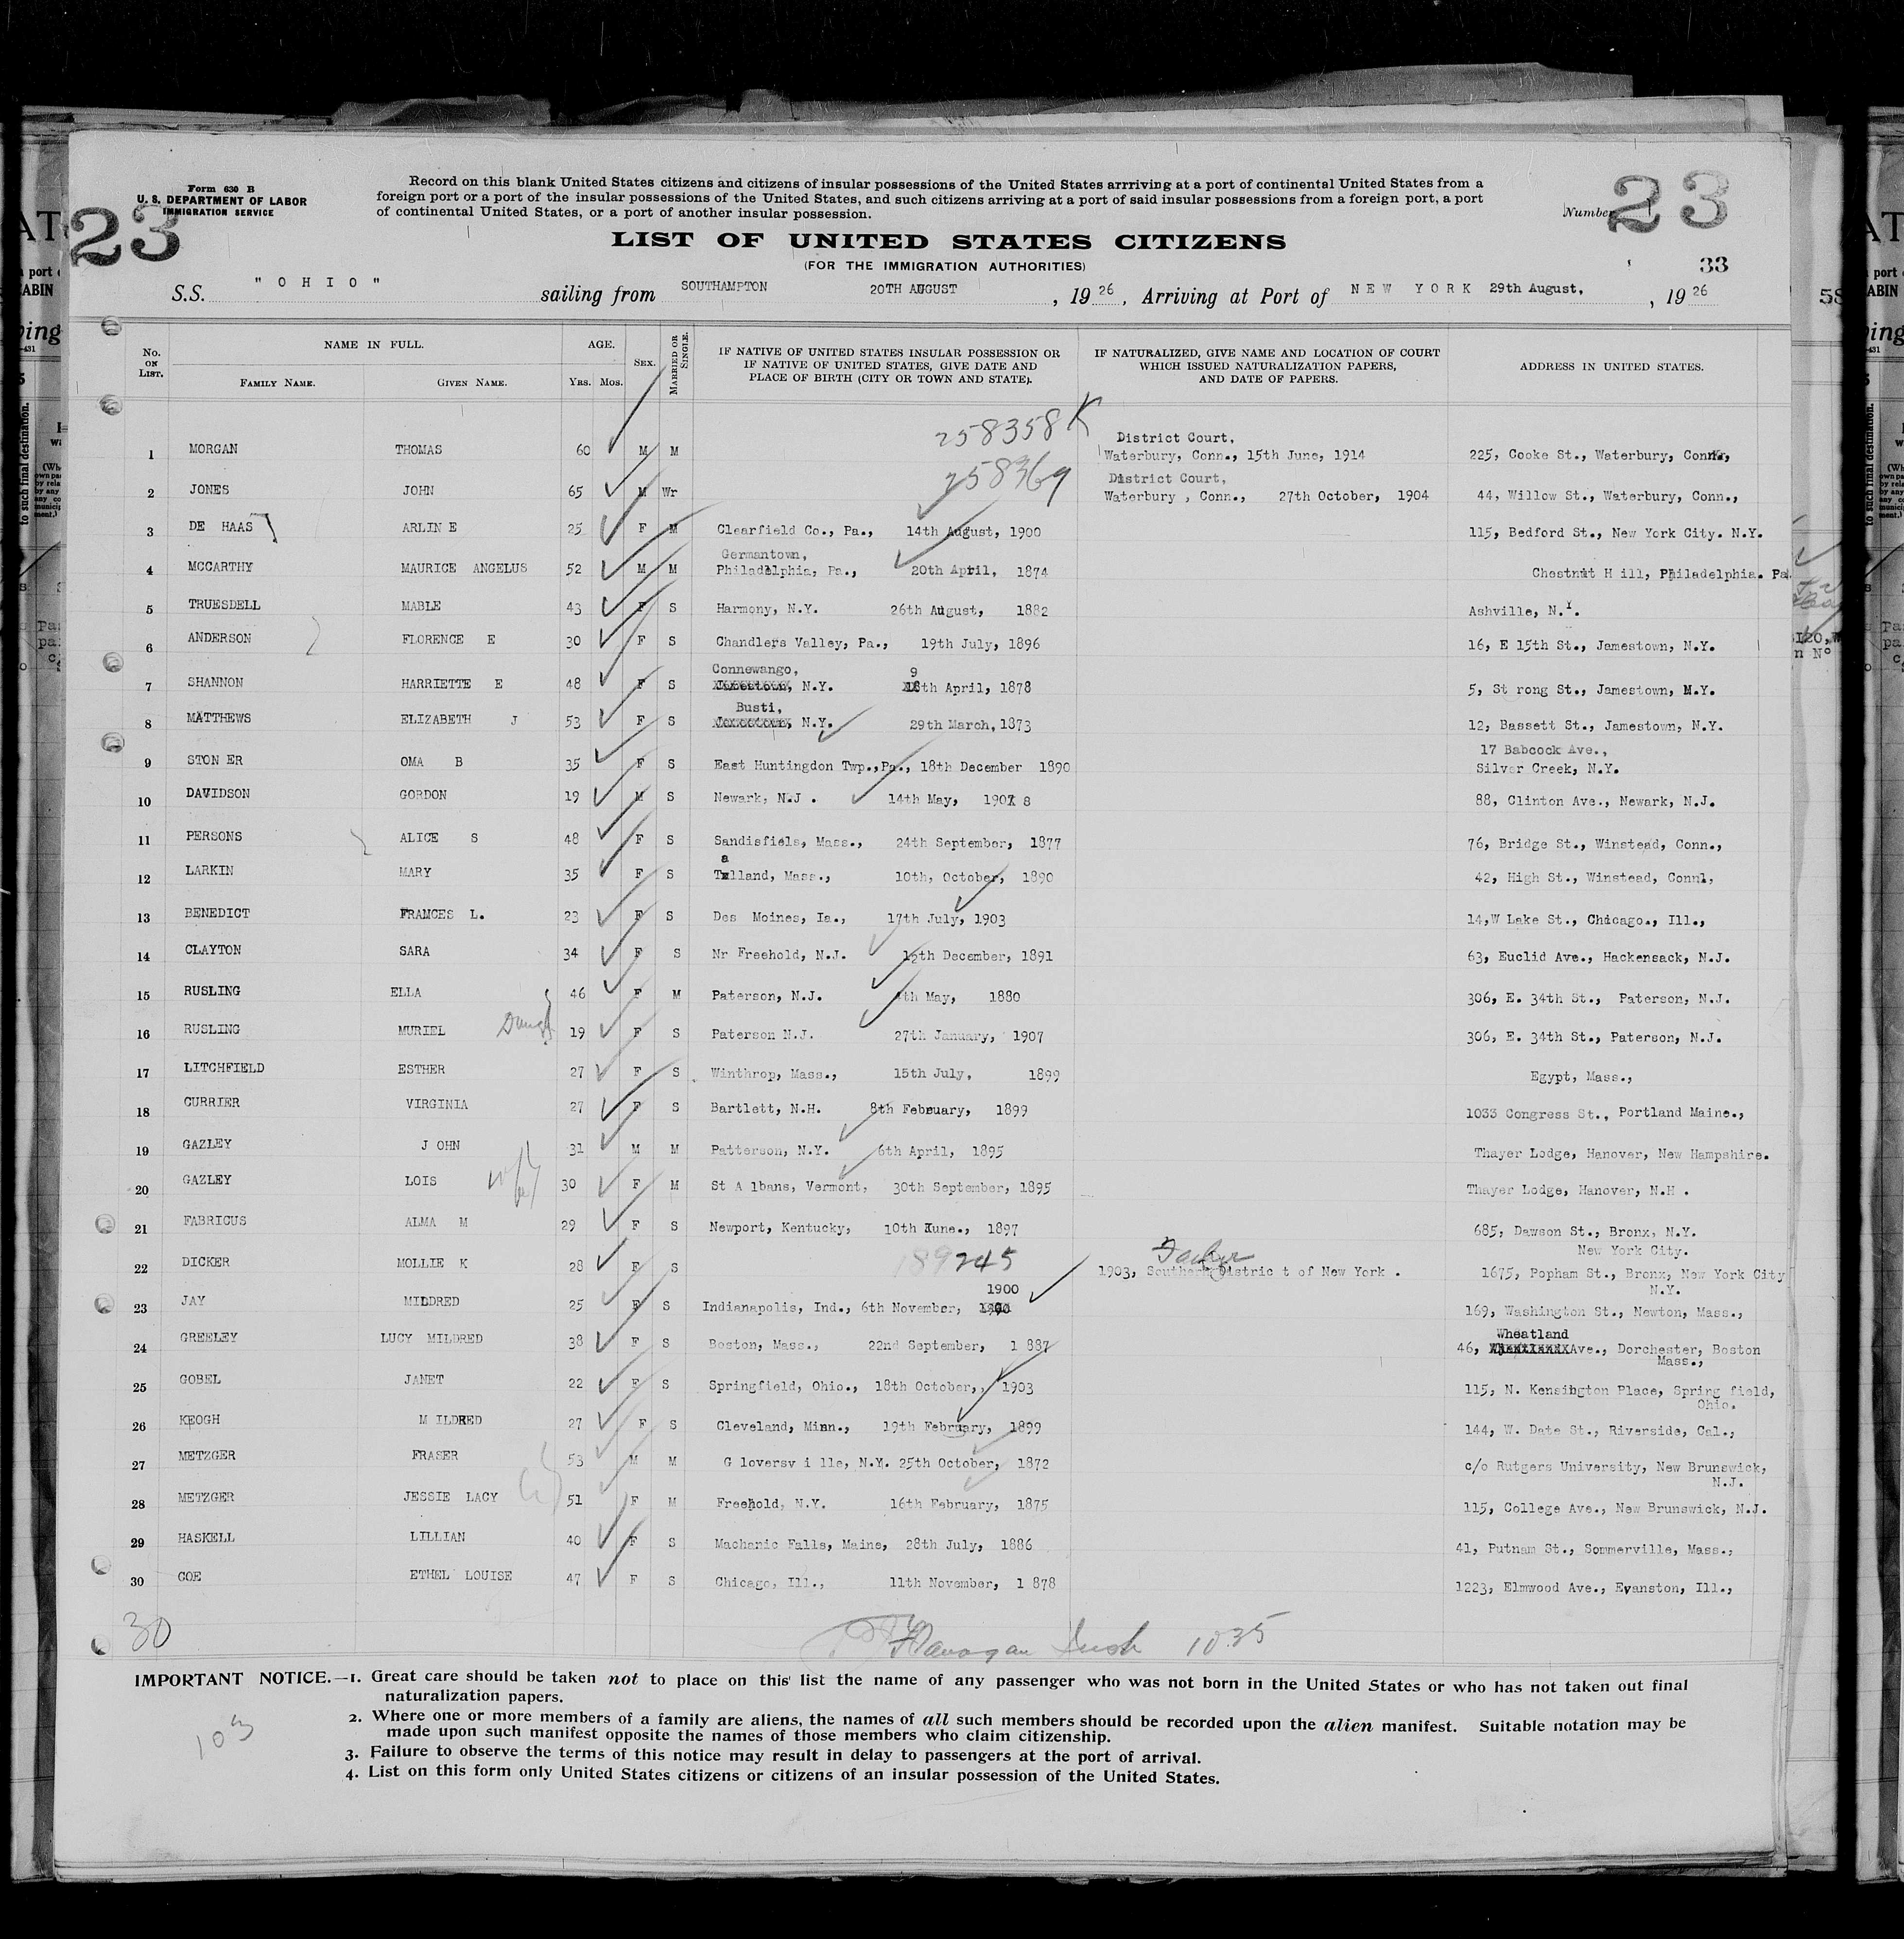 Form 630 B
U. S. DEPARTMENT OF LABOR
IMMIGRATION SERVICE
23
Record on this blank United States citizens and citizens of insular possessions of the United States arrriving at a port of continental United States from a
foreign port or a port of the insular possessions of the United States, and such citizens arriving at a port of said insular possessions from a foreign port, a port
of continental United States, or a port of another insular possession.
Number 23
LIST OF UNITED STATES CITIZENS
(FOR THE IMMIGRATION AUTHORITIES)
33
S.S. "OHIO" sailing from SOUTHAMPTON 20TH AUGUST, 1926, Arriving at Port of NEW YORK 29th August, , 1926
No. ON LIST. NAME IN FULL. FAMILY NAME. GIVEN NAME. AGE. YRS. MOS. SEX. MARRIED OR SINGLE. IF NATIVE OF UNITED STATES INSULAR POSSESSION OR IF NATIVE OF UNITED STATES, GIVE DATE AND PLACE OF BIRTH (CITY OR TOWN AND STATE). IF NATURALIZED, GIVE NAME AND LOCATION OF COURT WHICH ISSUED NATURALIZATION PAPERS, AND DATE OF PAPERS. ADDRESS IN UNITED STATES.
258358 K
District Court,
1 MORGAN THOMAS 60 M M Waterbury, Conn., 15th June, 1914 225, Cooke St., Waterbury, Conn.,
258369
District Court,
2 JONES JOHN 65 M Wr Waterbury , Conn., 27th October, 1904 44, Willow St., Waterbury, Conn.,
3 DE HAAS ARLIN E 25 F M Clearfield Co., Pa., 14th August, 1900 115, Bedford St., New York City. N.Y.
Germantown,
4 MCCARTHY MAURICE ANGELUS 52 M M Philadelphia, Pa., 20th April, 1874 Chestnut H ill, Philadelphia. Pa.
5 TRUESDELL MABLE 43 F S Harmony, N.Y. 26th August, 1882 Ashville, N.Y.
6 ANDERSON FLORENCE E 30 F S Chandlers Valley, Pa., 19th July, 1896 16, E 15th St., Jamestown, N.Y.
Connewango, 9
7 SHANNON HARRIETTE E 48 F S Jamestown, N.Y. 18th April, 1878 5, St rong St., Jamestown, N.Y.
Busti,
8 MATTHEWS ELIZABETH J 53 F S N.Y. 29th March, 1873 12, Bassett St., Jamestown, N.Y.
17 Babcock Ave.,
9 STON ER OMA B 35 F S East Huntingdon Twp.,Pa., 18th December 1890 Silver Creek, N.Y.
10 DAVIDSON GORDON 19 M S Newark, N.J . 14th May, 1907 8 88, Clinton Ave., Newark, N.J.
11 PERSONS ALICE S 48 F S Sandisfiels, Mass., 24th September, 1877 76, Bridge St., Winstead, Conn.,
a
12 LARKIN MARY 35 F S Tolland, Mass., 10th, October, 1890 42, High St., Winstead, Connl,
13 BENEDICT FRANCES L. 23 F S Des Moines, Ia., 17th July, 1903 14,W Lake St., Chicago., Ill.,
14 CLAYTON SARA 34 F S Nr Freehold, N.J. 12th December, 1891 63, Euclid Ave., Hackensack, N.J.
15 RUSLING ELLA 46 F M Paterson, N.J. 4th May, 1880 306, E. 34th St., Paterson, N.J.
16 RUSLING MURIEL Daug 19 F S Paterson N.J. 27th January, 1907 306, E. 34th St., Paterson, N.J.
17 LITCHFIELD ESTHER 27 F S Winthrop, Mass., 15th July, 1899 Egypt, Mass.,
18 CURRIER VIRGINIA 27 F S Bartlett, N.H. 8th February, 1899 1033 Congress St., Portland Maine.,
19 GAZLEY J OHN 31 M M Patterson, N.Y. 6th April, 1895 Thayer Lodge, Hanover, New Hampshire.
20 GAZLEY LOIS wife 30 F M St A lbans, Vermont, 30th September, 1895 Thayer Lodge, Hanover, N.H .
21 FABRICUS ALMA M 29 F S Newport, Kentucky, 10th June., 1897 685, Dawson St., Bronx, N.Y.
New York City.
189245 Father
22 DICKER MOLLIE K 28 F S 1903, Southern Distric t of New York . 1675, Popham St., Bronx, New York City
N.Y.
1900
23 JAY MILDRED 25 F S Indianapolis, Ind., 6th November, 169, Washington St., Newton, Mass.,
Wheatland
24 GREELEY LUCY MILDRED 38 F S Boston, Mass., 22nd September, 1 887 46, Ave., Dorchester, Boston
Mass.,
25 GOBEL JANET 22 F S Springfield, Ohio., 18th October,, 1903 115, N. Kensington Place, Spring field,
Ohio.
26 KEOGH M ILDRED 27 F S Cleveland, Minn., 19th February, 1899 144, W. Date St., Riverside, Cal.,
27 METZGER FRASER 53 M M G loversv i lle, N.Y. 25th October, 1872 c/o Rutgers University, New Brunswick,
N.J.
28 METZGER JESSIE LACY 51 F M Freehold, N.Y. 16th February, 1875 115, College Ave., New Brunswick, N.J.
29 HASKELL LILLIAN 40 F S Machanic Falls, Maine, 28th July, 1886 41, Putnam St., Sommerville, Mass.,
30 COE ETHEL LOUISE 47 F S Chicago, Ill., 11th November, 1 878 1223, Elmwood Ave., Evanston, Ill.,
30
Flanagan 1035
IMPORTANT NOTICE.—1. Great care should be taken not to place on this list the name of any passenger who was not born in the United States or who has not taken out final
naturalization papers.
2. Where one or more members of a family are aliens, the names of all such members should be recorded upon the alien manifest. Suitable notation may be
made upon such manifest opposite the names of those members who claim citizenship.
3. Failure to observe the terms of this notice may result in delay to passengers at the port of arrival.
4. List on this form only United States citizens or citizens of an insular possession of the United States.
103